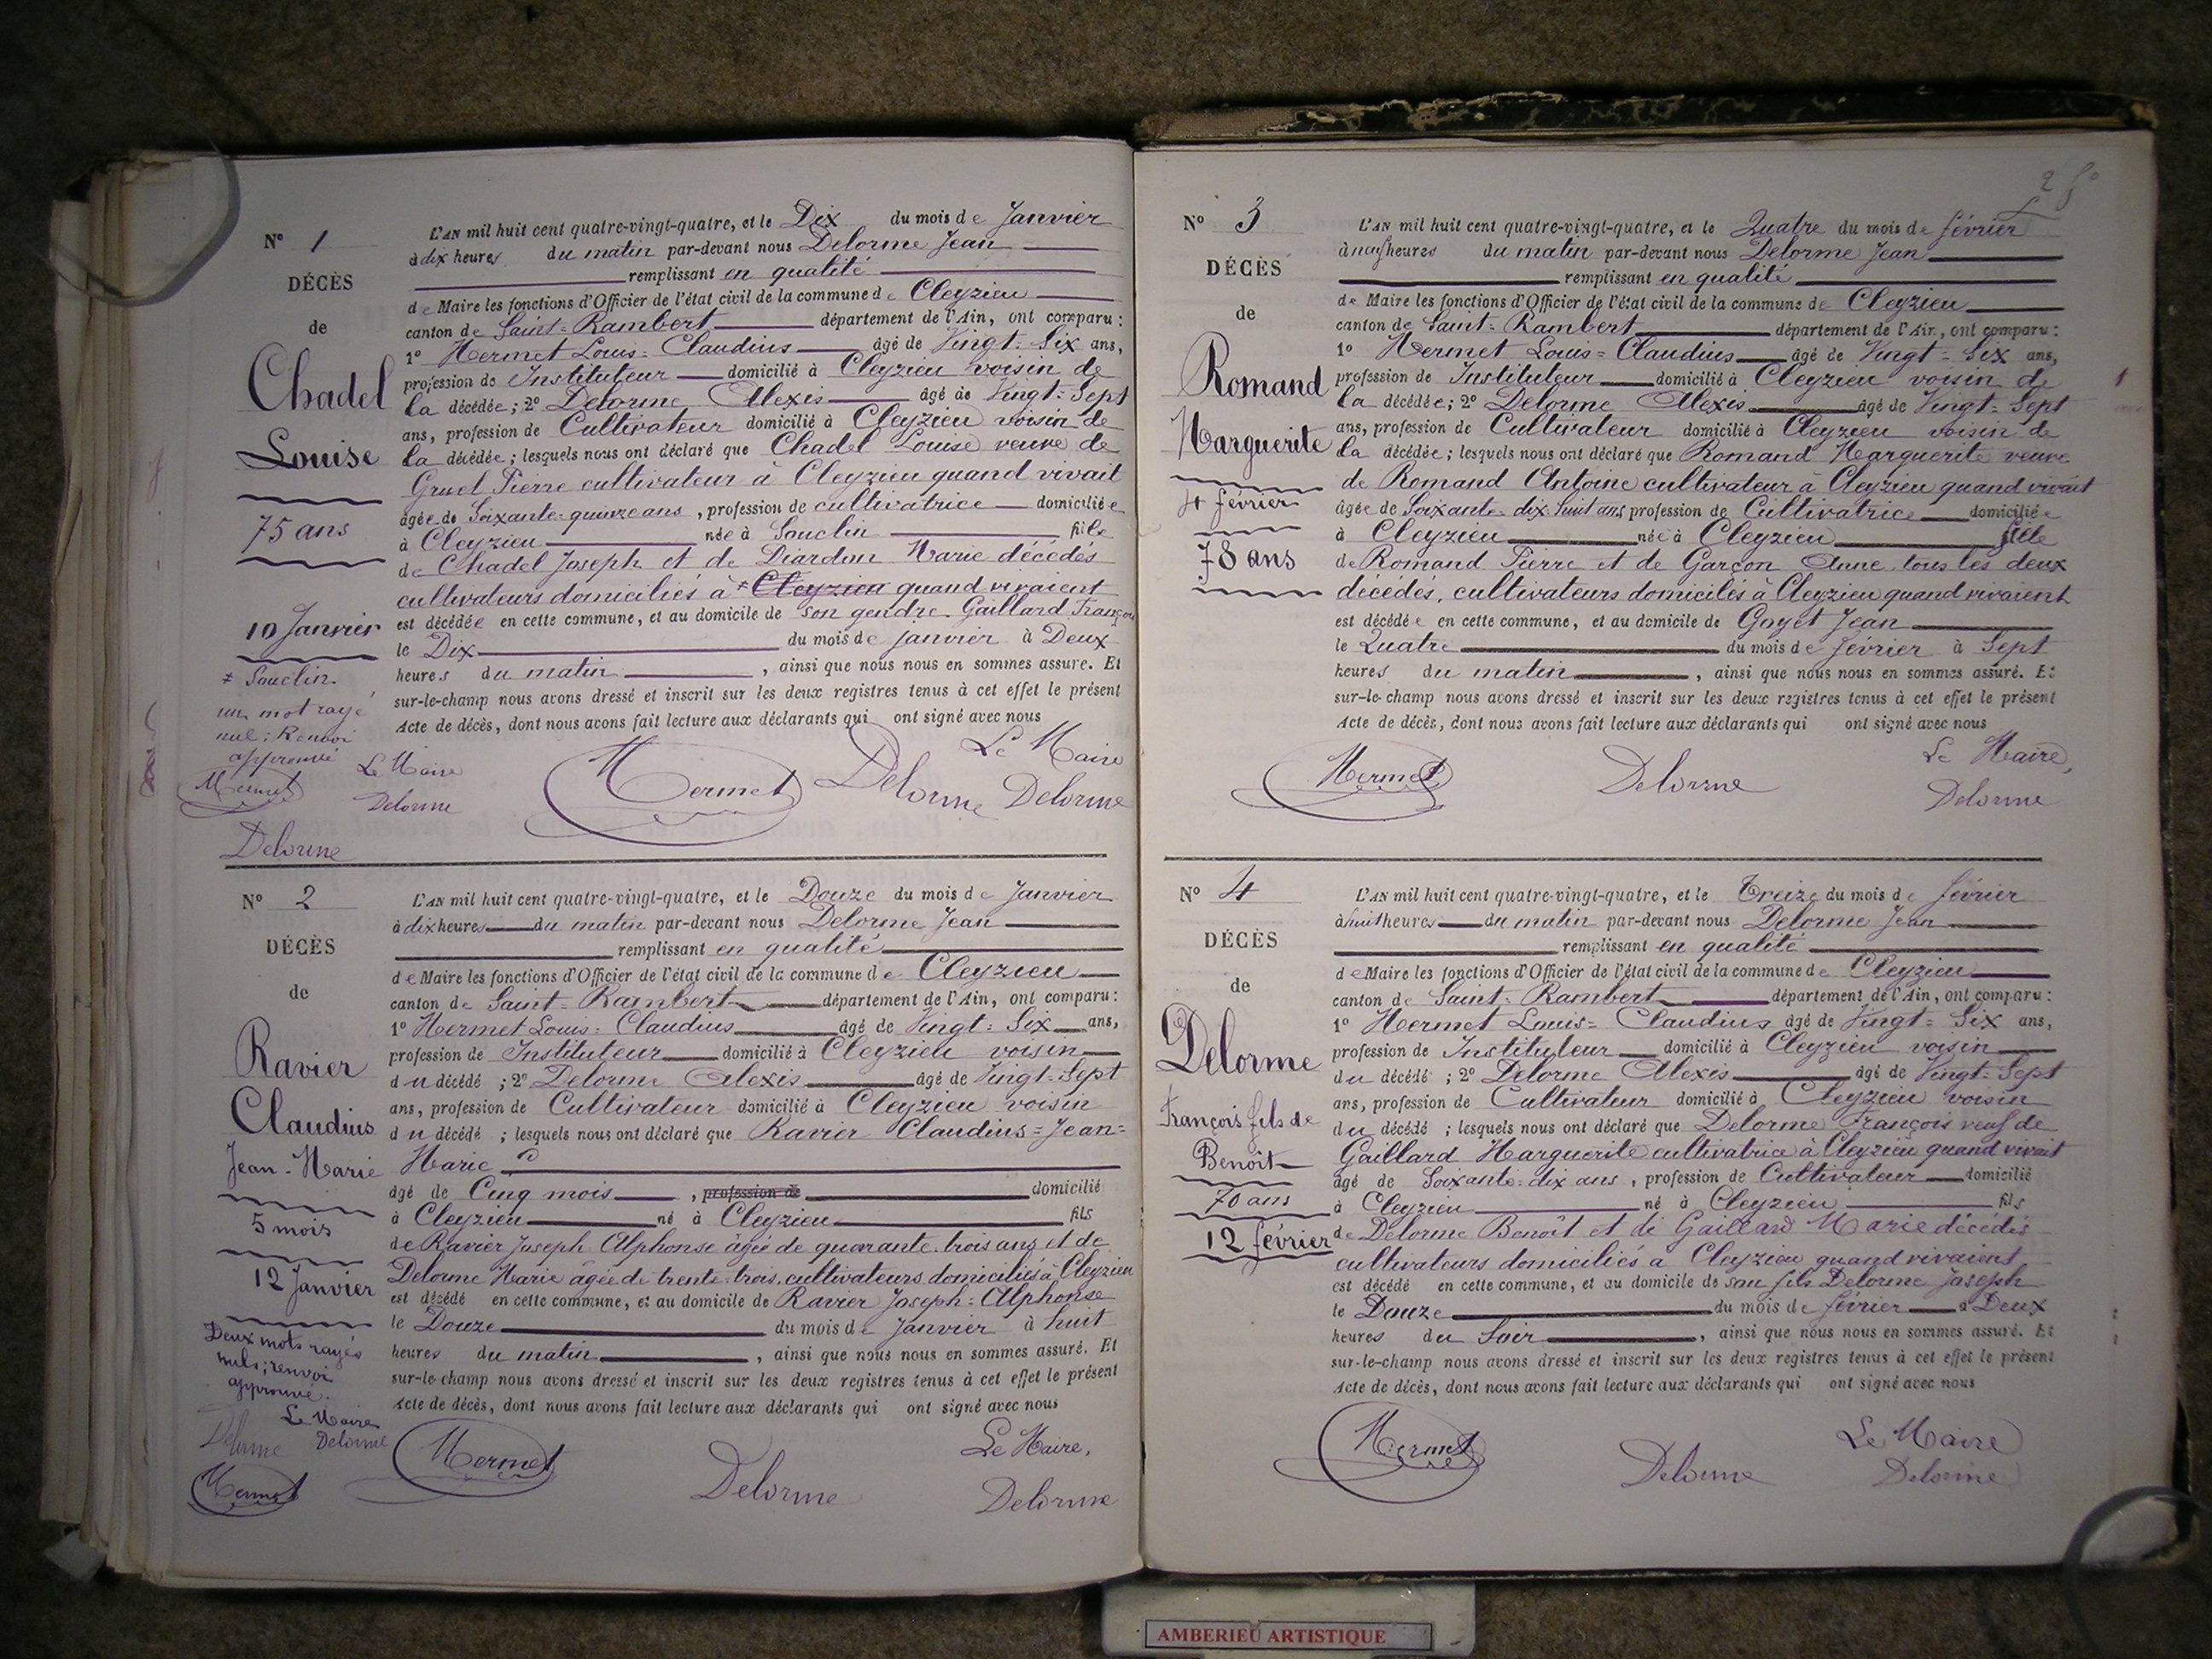 N° 1
DÉCÈS
de
Chadel
Louise
75 ans
10 Janvier
≠ Souclin
un mot rayé
nul ; Renvoi
approuvé
Mermet
Le Maire
Delorme
Delorme
L'AN mil huit cent quatre-vingt-quatre, et le Dix du mois de Janvier
à dix heures du matin par-devant nous Delorme Jean
remplissant en qualité
de Maire les fonctions d'Officier de l'état civil de la commune de Cleyzieu
canton de Saint-Rambert département de l'Ain, ont comparu :
1° Mermet Louis-Claudius âgé de Vingt-Six ans,
profession de Instituteur domicilié à Cleyzieu voisin de
la décédée ; 2° Delorme Alexis âgé de Vingt-Sept
ans, profession de Cultivateur domicilié à Cleyzieu voisin de
la décédée ; lesquels nous ont déclaré que Chadel Louise veuve de
Gruel Pierre cultivateur à Cleyzieu quand vivait
âgée de Soixante-quinze ans, profession de cultivatrice domiciliée
à Cleyzieu née à Souclin fille
de Chadel Joseph et de Marie décédés
cultivateurs domiciliés à ≠ Cleyzieu quand vivaient
est décédée en cette commune, et au domicile de son gendre Gaillard François
le Dix du mois de Janvier à Deux
heures du matin, ainsi que nous nous en sommes assuré. Et
sur-le-champ nous avons dressé et inscrit sur les deux registres tenus à cet effet le présent
Acte de décès, dont nous avons fait lecture aux déclarants qui ont signé avec nous
Le Maire
Mermet Delorme Delorme
N° 2
DÉCÈS
de
Ravier
Claudius
Jean-Marie
5 mois
12 Janvier
Deux mots rayés
nuls ; renvoi
approuvé.
Le Maire
Delorme Delorme
Mermet
L'AN mil huit cent quatre-vingt-quatre, et le Douze du mois de Janvier
à dix heures du matin par-devant nous Delorme Jean
remplissant en qualité
de Maire les fonctions d'Officier de l'état civil de la commune de Cleyzieu
canton de Saint-Rambert département de l'Ain, ont comparu :
1° Mermet Louis-Claudius âgé de Vingt-Six ans,
profession de Instituteur domicilié à Cleyzieu voisin
du décédé ; 2° Delorme Alexis âgé de Vingt-Sept
ans, profession de Cultivateur domicilié à Cleyzieu voisin
du décédé ; lesquels nous ont déclaré que Ravier Claudius-Jean-
Marie
âgé de Cinq mois, profession de domicilié
à Cleyzieu né à Cleyzieu fils
de Ravier Joseph Alphonse âgée de quarante-trois ans et de
Delorme Marie âgée de trente-trois, cultivateurs domiciliés à Cleyzieu
est décédé en cette commune, et au domicile de Ravier Joseph-Alphonse
le Douze du mois de Janvier à huit
heures du matin, ainsi que nous nous en sommes assuré. Et
sur-le-champ nous avons dressé et inscrit sur les deux registres tenus à cet effet le présent
Acte de décès, dont nous avons fait lecture aux déclarants qui ont signé avec nous
Le Maire,
Mermet Delorme Delorme
N° 3
DÉCÈS
de
Romand
Marguerite
4 février
78 ans
L'AN mil huit cent quatre-vingt-quatre, et le Quatre du mois de février
à neuf heures du matin par-devant nous Delorme Jean
remplissant en qualité
de Maire les fonctions d'Officier de l'état civil de la commune de Cleyzieu
canton de Saint-Rambert département de l'Ain, ont comparu :
1° Mermet Louis-Claudius âgé de Vingt-Six ans,
profession de Instituteur domicilié à Cleyzieu voisin de
la décédée ; 2° Delorme Alexis âgé de Vingt-Sept
ans, profession de Cultivateur domicilié à Cleyzieu voisin de
la décédée ; lesquels nous ont déclaré que Romand Marguerite veuve
de Romand Antoine cultivateur à Cleyzieu quand vivait
âgée de Soixante-dix-huit ans profession de Cultivatrice domiciliée
à Cleyzieu née à Cleyzieu fille
de Romand Pierre et de Garçon Anne tous les deux
décédés, cultivateurs domiciliés à Cleyzieu quand vivaient
est décédée en cette commune, et au domicile de Goyet Jean
le Quatre du mois de février à Sept
heures du matin, ainsi que nous nous en sommes assuré. Et
sur-le-champ nous avons dressé et inscrit sur les deux registres tenus à cet effet le présent
Acte de décès, dont nous avons fait lecture aux déclarants qui ont signé avec nous
Le Maire,
Mermet Delorme Delorme
N° 4
DÉCÈS
de
Delorme
François fils de
Benoit
70 ans
12 février
L'AN mil huit cent quatre-vingt-quatre, et le Treize du mois de février
à huit heures du matin par-devant nous Delorme Jean
remplissant en qualité
de Maire les fonctions d'Officier de l'état civil de la commune de Cleyzieu
canton de Saint-Rambert département de l'Ain, ont comparu :
1° Mermet Louis-Claudius âgé de Vingt-Six ans,
profession de Instituteur domicilié à Cleyzieu voisin
du décédé ; 2° Delorme Alexis âgé de Vingt-Sept
ans, profession de Cultivateur domicilié à Cleyzieu voisin
du décédé ; lesquels nous ont déclaré que Delorme François veuf de
Gaillard Marguerite cultivatrice à Cleyzieu quand vivait
âgé de Soixante-dix ans, profession de Cultivateur domicilié
à Cleyzieu né à Cleyzieu fils
de Delorme Benoît et de Gaillard Marie décédés
cultivateurs domiciliés à Cleyzieu quand vivaient
est décédé en cette commune, et au domicile de son fils Delorme Joseph
le Douze du mois de février à Deux
heures du Soir, ainsi que nous nous en sommes assuré. Et
sur-le-champ nous avons dressé et inscrit sur les deux registres tenus à cet effet le présent
Acte de décès, dont nous avons fait lecture aux déclarants qui ont signé avec nous
Le Maire
Mermet Delorme Delorme
AMBERIEU ARTISTIQUE